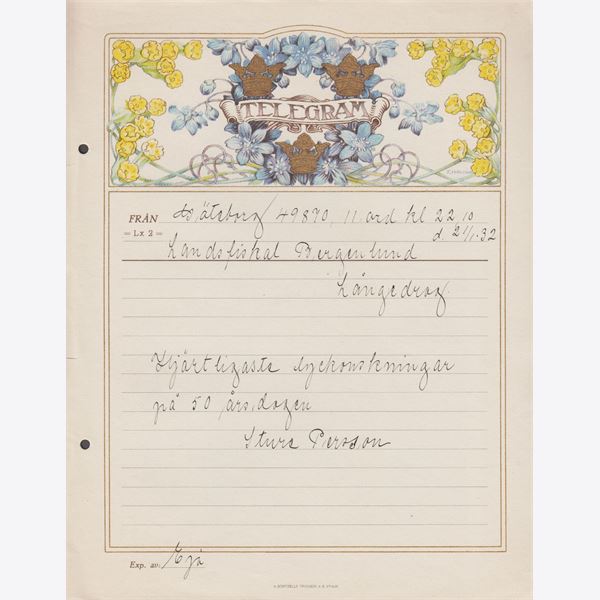 TELEGRAM
FRÅN Göteborg 49870, 11 ord kl 22,10
= Lx 2 = d. 21/1-32
Landsfiskal Bergenlund
Långedrag.
Hjärtligaste lyckonskningar
på 50 årsdagen
Sture Persson
Exp. av: